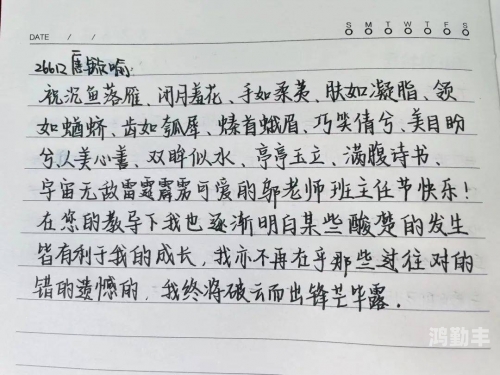 DATE / /
S M T W T F S
26612 唐
祝沉鱼落雁、闭月羞花、手如柔荑、肤如凝脂、领
如蝤蛴、齿如瓠犀、螓首蛾眉、巧笑倩兮、美目盼
兮、人美心善、双眸似水、亭亭玉立、满腹诗书、
宇宙无敌雷霆霹雳可爱的邬老师班主任节快乐!
在您的教导下我也逐渐明白某些酸楚的发生
皆有利于我的成长，我亦不再在乎那些过往对的
错的遗憾的，我终将破云而出锋芒毕露.
鸿勤丰